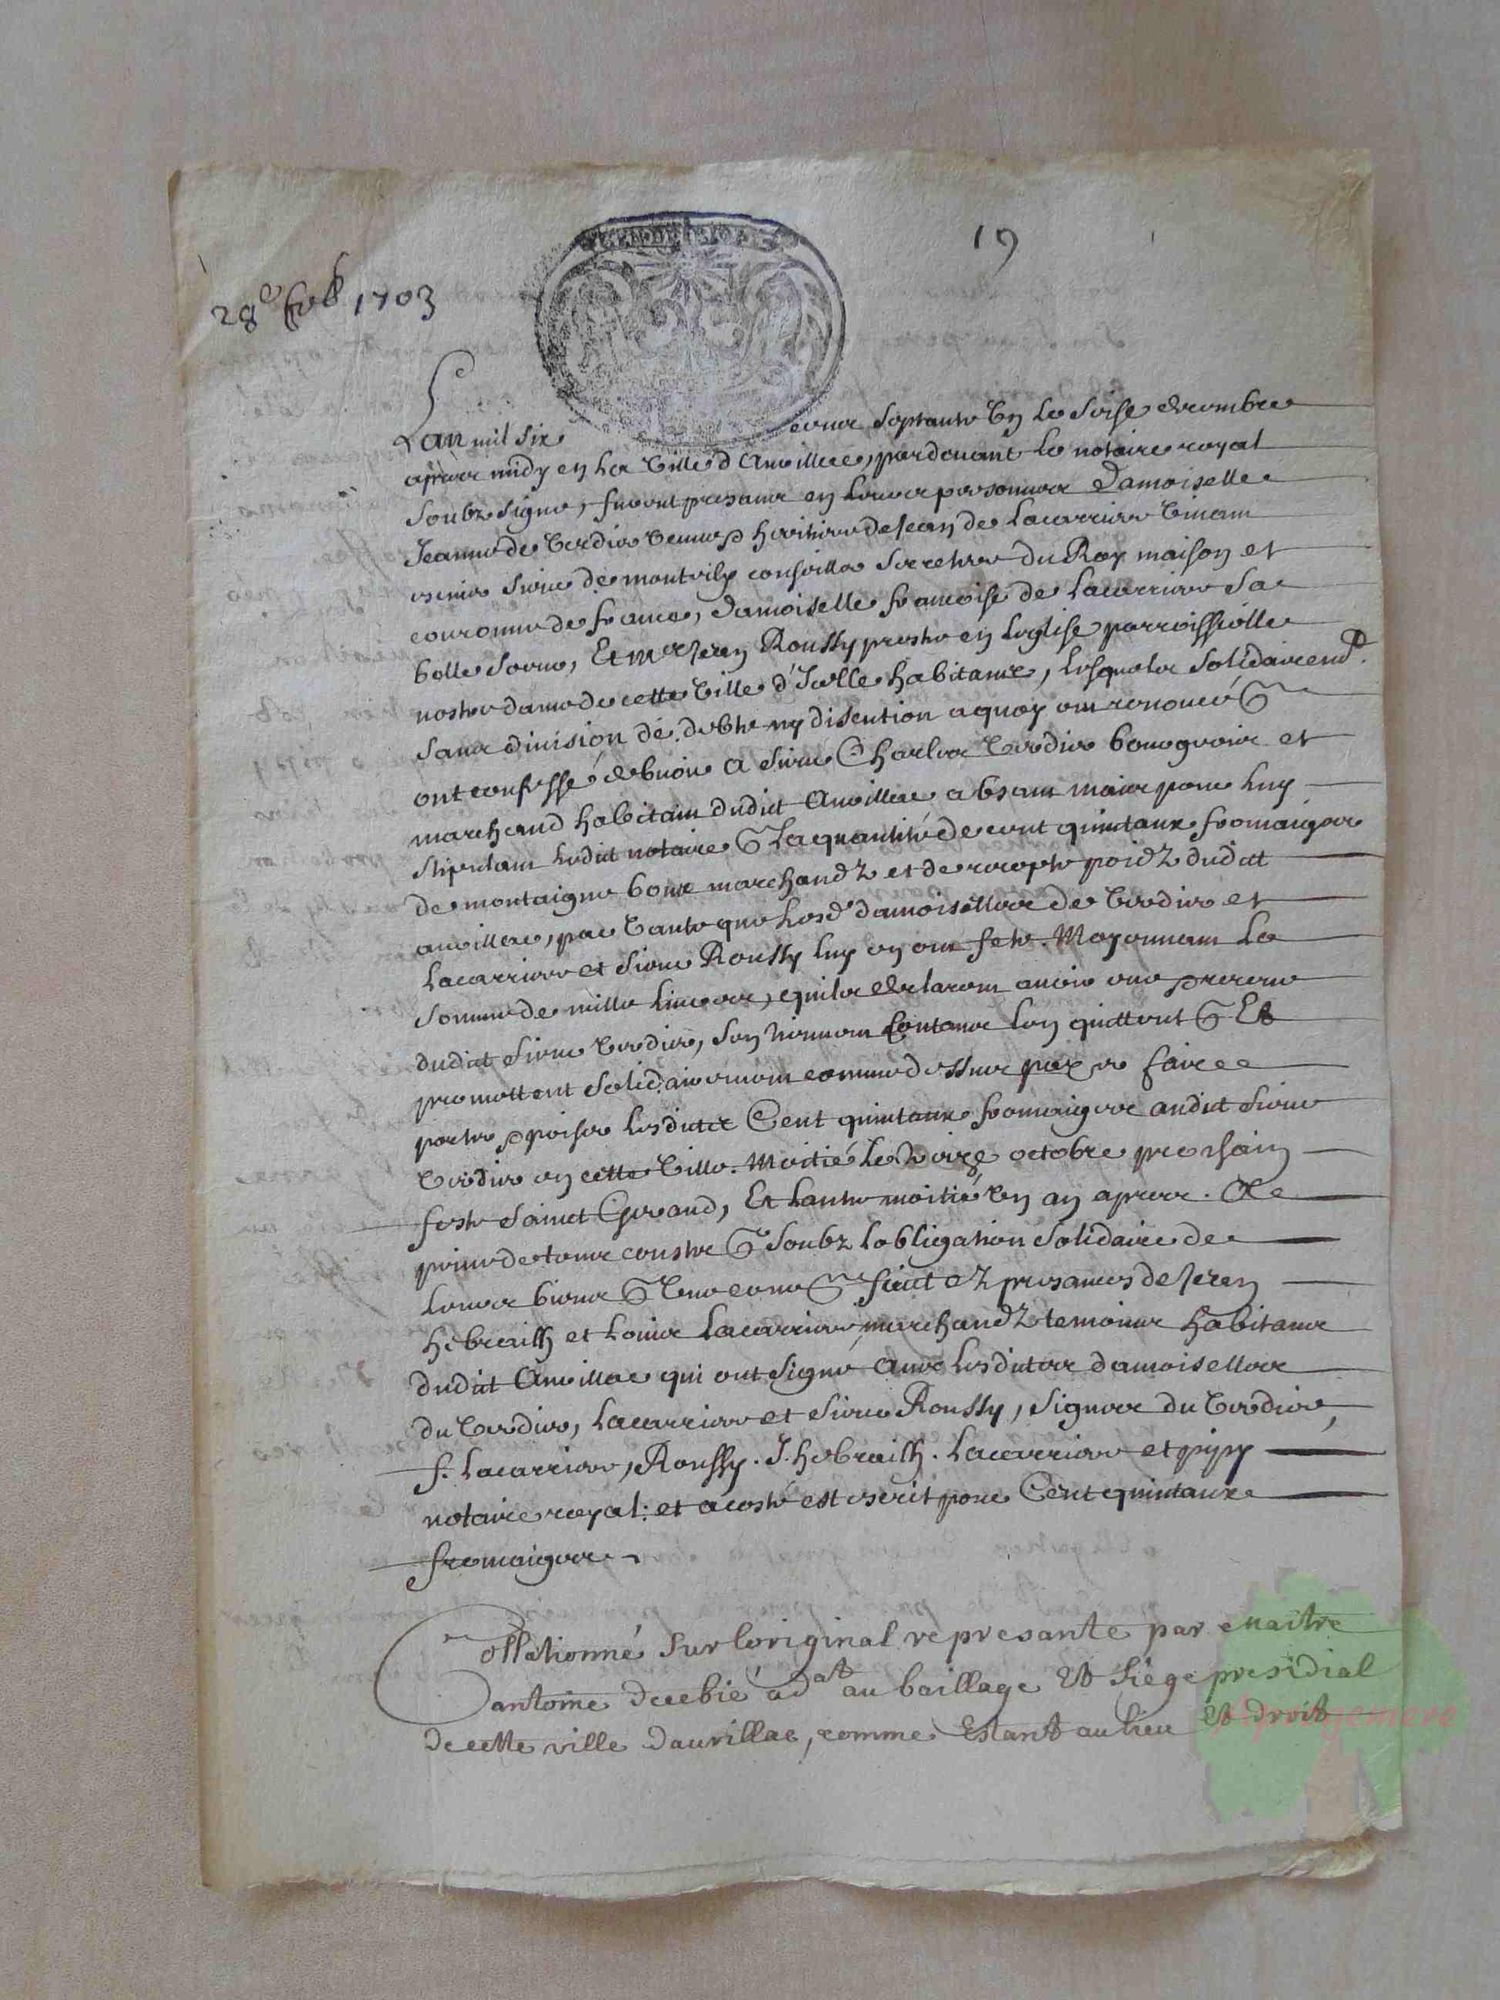 19
28e feb 1703
Lan mil six cens septante un le seise decembre
apres midy en la ville d'Aurillac, pardevant le notaire royal
soubz signe, furent presans en leurs personnes damoiselle
Jeanne de Verdier veuve & heritiere de Jean de Lacarriere vivant
escuier sieur de montvily conseiller secretere du Roy maison et
couronne de france, damoiselle francoise de Lacarriere sa
belle soeur, Et Mre Jean Roussy prestre en leglise parroissielle
nostre dame de cette ville d'Icelle habitans, lesquels solidairemt
sans division de debte ny discution a quoy ont renoncé
ont confessé debvoir a sieur Charles Verdier bourgeois et
marchand habitant dudict Aurillac absant mais pour luy
stipulant ledit notaire La quantité de cent quintaux fromaiges
de montaigne bons marchandz et de recepte poidz dudit
aurillac, par vante que lesd damoiselles de Verdier et
Lacarriere et sieur Roussy luy en ont fete. Moyennant la
somme de mille livres, quils declarent avoir eue & receue
dudit sieur Verdier, sen tiennent contans len quittent Et
promettent solidairement comme dessus faire
porter & poiser lesdits Cent quintaux fromaiges audit sieur
Verdier en cette ville. Moitié le treize octobre prochain
feste Sainct Geraud, Et lautre moitié un an apres. A
peine de tous coustz soubz lobligation solidaire de
leurs biens faict ez presances de Jean
hebrailh et Louis Lacarriere marchandz temoins habitans
dudit Aurillac qui ont signé avec lesdites damoiselles
du Verdier, Lacarriere et sieur Roussy, signes du Verdier,
f. Lacarriere, Roussy. J. hebrailh. Lacarriere et pipy
notaire royal: et a costé est escrit pour Cent quintaux
fromaiges
Collationné sur loriginal representé par Maitre
antoine decebié adat au baillage et siege presidial
de cette ville daurillac, comme Estant au lieu et droit